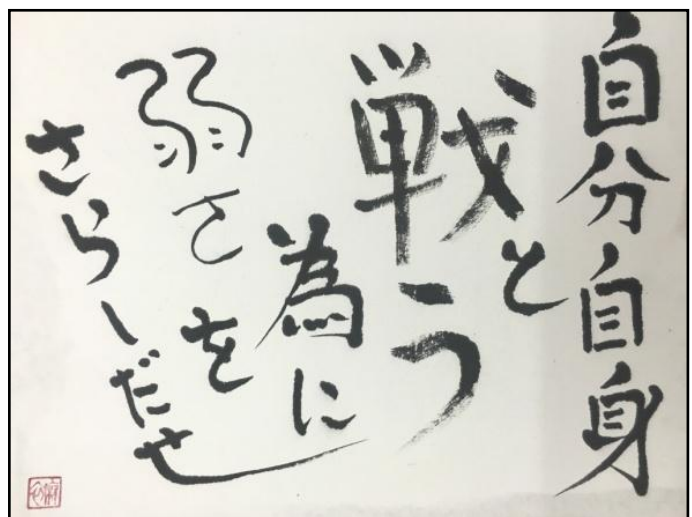 自分自身
と
戦う
為に
弱さを
さらしだせ